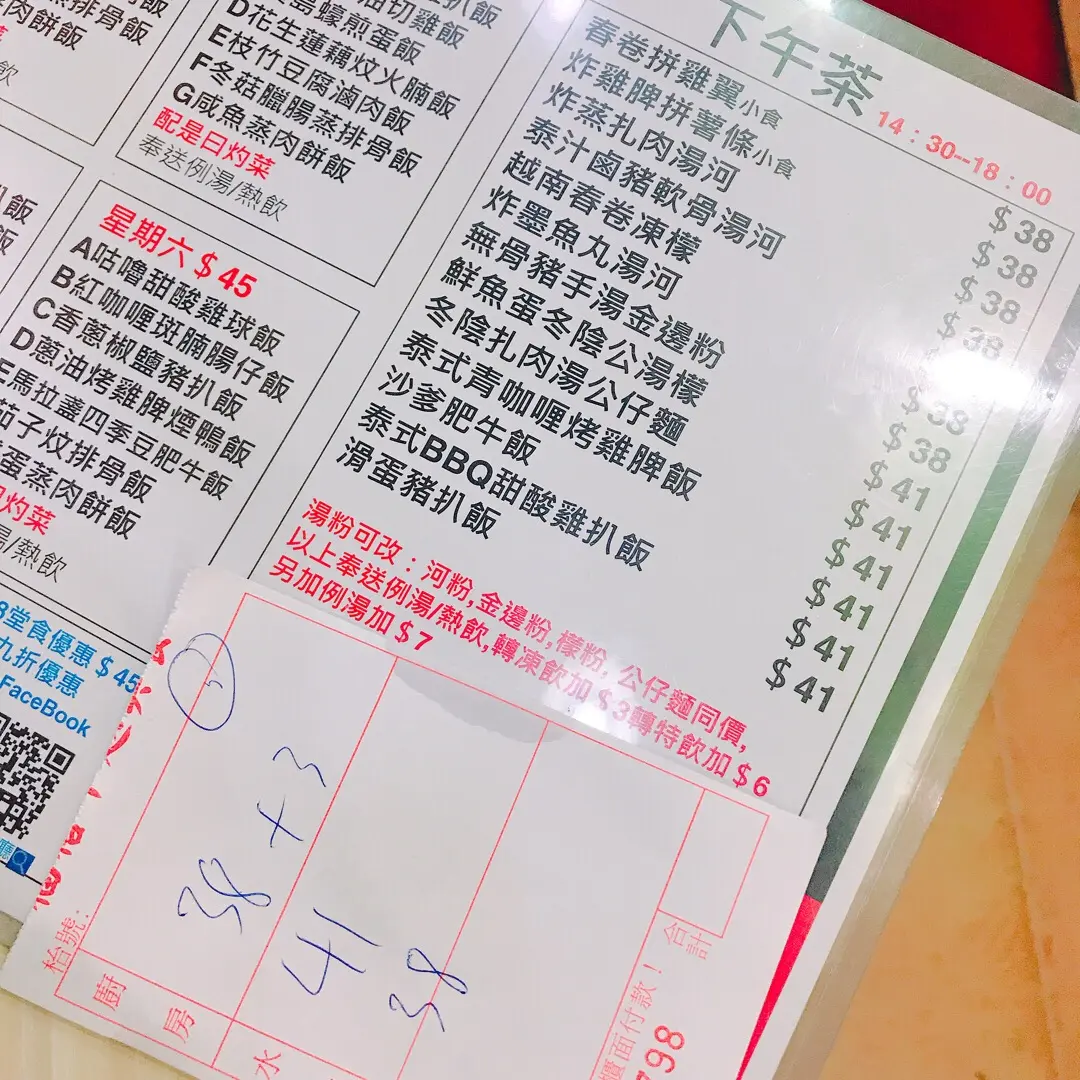 排骨飯
肉餅飯
飲
扒飯
油切雞飯
蠔煎蛋飯
D花生蓮藕炆火腩飯
E枝竹豆腐滷肉飯
F冬菇臘腸蒸排骨飯
G咸魚蒸肉餅飯
配是日灼菜
奉送例湯/熱飲
扒飯
飯
星期六 $45
A咕嚕甜酸雞球飯
B紅咖喱斑腩腸仔飯
C香蔥椒鹽豬扒飯
D蔥油烤雞脾煙鴨飯
E馬拉盞四季豆肥牛飯
茄子炆排骨飯
蛋蒸肉餅飯
灼菜
湯/熱飲
堂食優惠 $45
九折優惠
FaceBook
下午茶
14:30--18:00
春卷拼雞翼小食 $38
炸雞脾拼薯條小食 $38
炸蒸扎肉湯河 $38
泰汁鹵豬軟骨湯河 $38
越南春卷凍檬
炸墨魚丸湯河 $38
無骨豬手湯金邊粉 $38
鮮魚蛋冬陰公湯檬 $41
冬陰扎肉湯公仔麵 $41
泰式青咖喱烤雞脾飯 $41
沙爹肥牛飯 $41
泰式BBQ甜酸雞扒飯 $41
滑蛋豬扒飯 $41
湯粉可改:河粉,金邊粉,檬粉,公仔麵同價,
以上奉送例湯/熱飲,轉凍飲加 $3轉特飲加 $6
另加例湯加 $7
枱號:
廚房
水
合計
櫃面付款!
798
+3
41